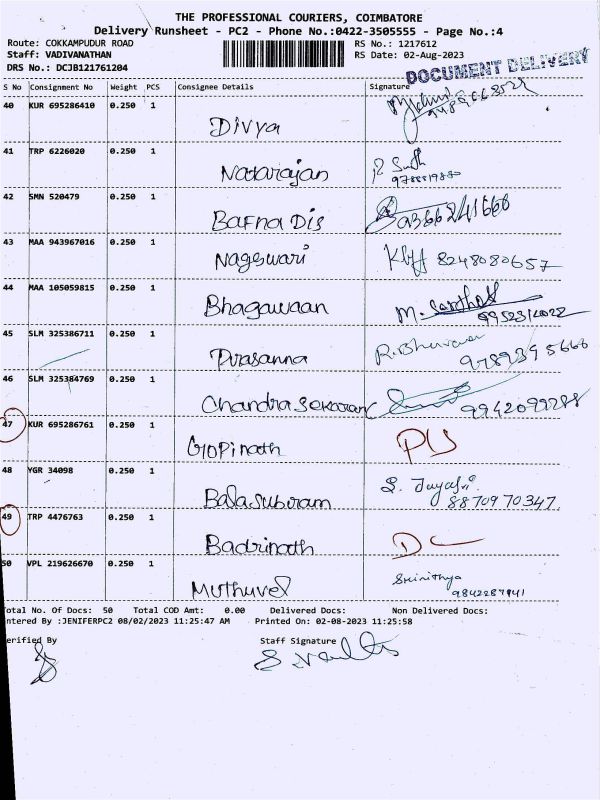 THE PROFESSIONAL COURIERS, COIMBATORE
Delivery Runsheet - PC2 - Phone No.:0422-3505555 - Page No.:4
Route: COKKAMPUDUR ROAD RS No.: 1217612
Staff: VADIVANATHAN RS Date: 02-Aug-2023
DRS No.: DCJB121761204
DOCUMENT DELIVERY
S No Consignment No Weight PCS Consignee Details Signature
40 KUR 695286410 0.250 1 Divya
41 TRP 6226020 0.250 1 Natarajan
42 SMN 520479 0.250 1 Bafna Dis
43 MAA 943967016 0.250 1 Nageswari 8248080657
44 MAA 105059815 0.250 1 Bhagawaan
45 SLM 325386711 0.250 1 Prasanna R.Bhuvana 9789395666
46 SLM 325384769 0.250 1 Chandra Sekaran 9942099288
47 KUR 695286761 0.250 1 Gopinath
48 YGR 34098 0.250 1 Balasubiram S. Jayasri 8870970347.
49 TRP 4476763 0.250 1 Badrinath DC
50 VPL 219626670 0.250 1 Muthuvel Srinithya 9842287941
Total No. Of Docs: 50 Total COD Amt: 0.00 Delivered Docs: Non Delivered Docs:
ntered By :JENIFERPC2 08/02/2023 11:25:47 AM Printed On: 02-08-2023 11:25:58
erified By Staff Signature